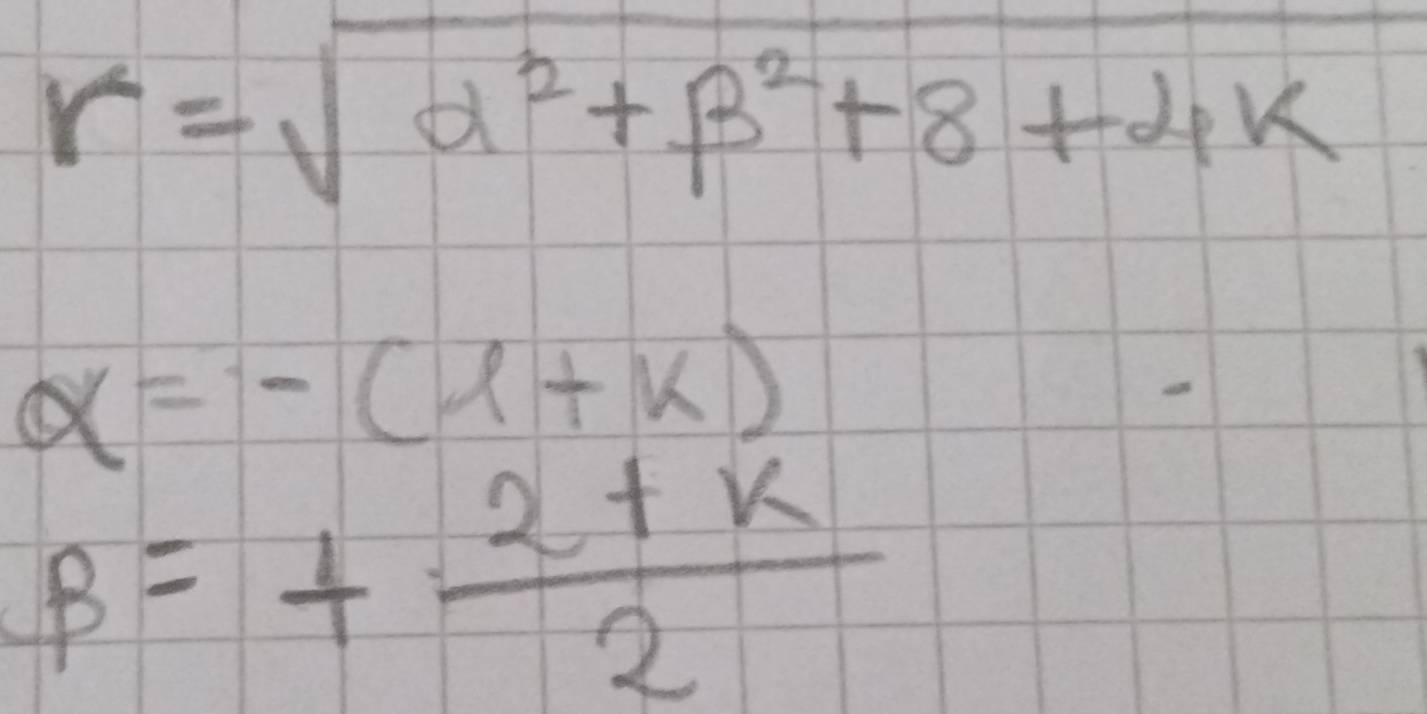 r = √(α² + β² + 8 + 4k)
α = - (1 + k)
β = + (2 + k)/2